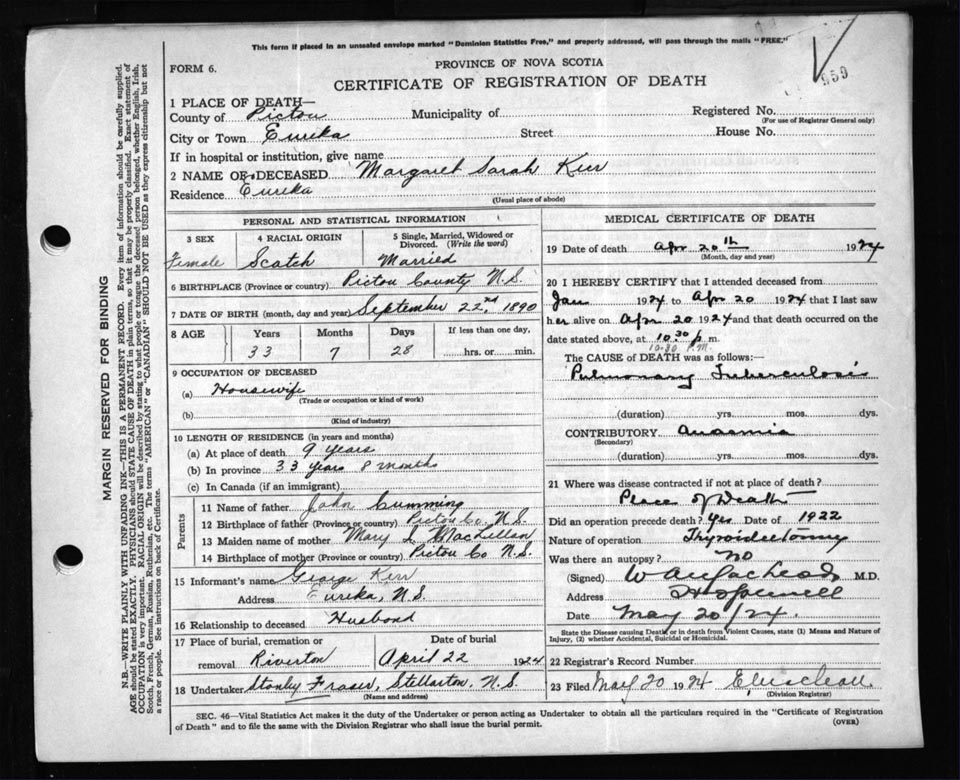 This form if placed in an unsealed envelope marked "Dominion Statistics Free," and properly addressed, will pass through the mails "FREE."
FORM 6.
PROVINCE OF NOVA SCOTIA
CERTIFICATE OF REGISTRATION OF DEATH
959
1 PLACE OF DEATH—
County of Pictou Municipality of Registered No.
(For use of Registrar General only)
City or Town Eureka Street House No.
If in hospital or institution, give name
2 NAME OF DECEASED Margaret Sarah Kerr
Residence Eureka
(Usual place of abode)
PERSONAL AND STATISTICAL INFORMATION
3 SEX 4 RACIAL ORIGIN 5 Single, Married, Widowed or Divorced. (Write the word)
Female Scotch Married
6 BIRTHPLACE (Province or country) Pictou County N.S.
7 DATE OF BIRTH (month, day and year) September 22nd, 1890
8 AGE Years Months Days If less than one day,
33 7 28 hrs. or min.
9 OCCUPATION OF DECEASED
(a) Housewife
(Trade or occupation or kind of work)
(b)
(Kind of industry)
10 LENGTH OF RESIDENCE (in years and months)
(a) At place of death 9 years
(b) In province 33 years 8 months
(c) In Canada (if an immigrant)
Parents
11 Name of father John Cumming
12 Birthplace of father (Province or country) Pictou Co. N.S.
13 Maiden name of mother Mary L MacLellan
14 Birthplace of mother (Province or country) Pictou Co N.S.
15 Informant's name George Kerr
Address Eureka, N.S.
16 Relationship to deceased Husband
17 Place of burial, cremation or removal Riverton Date of burial April 22 1924
18 Undertaker Stanley Fraser, Stellarton, N.S.
(Name and address)
MEDICAL CERTIFICATE OF DEATH
19 Date of death Apr 20th 1924
(Month, day and year)
20 I HEREBY CERTIFY that I attended deceased from
Jan 1924 to Apr 20 1924 that I last saw
her alive on Apr 20 1924 and that death occurred on
date stated above, at 10.30 p m.
10-30 P.M.
The CAUSE OF DEATH was as follows:
Pulmonary Tuberculosis
(duration) yrs. mos. dys.
CONTRIBUTORY Anaemia
(Secondary)
(duration) yrs. mos. dys.
21 Where was disease contracted if not at place of death?
Place of Death
Did an operation precede death? Yes Date of 1922
Nature of operation Thyroidectomy
Was there an autopsy? No
(Signed) M.D.
Address Hopewell
Date May 20/24.
State the Disease causing Death, or in death from Violent Causes, state (1) Means and Nature of Injury, (2) whether Accidental, Suicidal or Homicidal.
22 Registrar's Record Number
23 Filed May 20 1924
(Division Registrar)
SEC. 46—Vital Statistics Act makes it the duty of the Undertaker or person acting as Undertaker to obtain all the particulars required in the "Certificate of Registration
of Death" and to file the same with the Division Registrar who shall issue the burial permit.
(OVER)
MARGIN RESERVED FOR BINDING
N.B.—WRITE PLAINLY WITH UNFADING INK—THIS IS A PERMANENT RECORD. Every item of information should be carefully supplied.
AGE should be stated EXACTLY. PHYSICIANS should STATE CAUSE OF DEATH in plain terms, so that it may be properly classified. Exact statement of
OCCUPATION is very important. RACIAL ORIGIN will be described by stating to what people or tongue the deceased person belonged, whether English, Irish,
Scotch, French, German, Russian, Ruthenian, etc. The terms "AMERICAN" or "CANADIAN" SHOULD NOT BE USED as they express citizenship but not
a race or people. See instructions on back of Certificate.